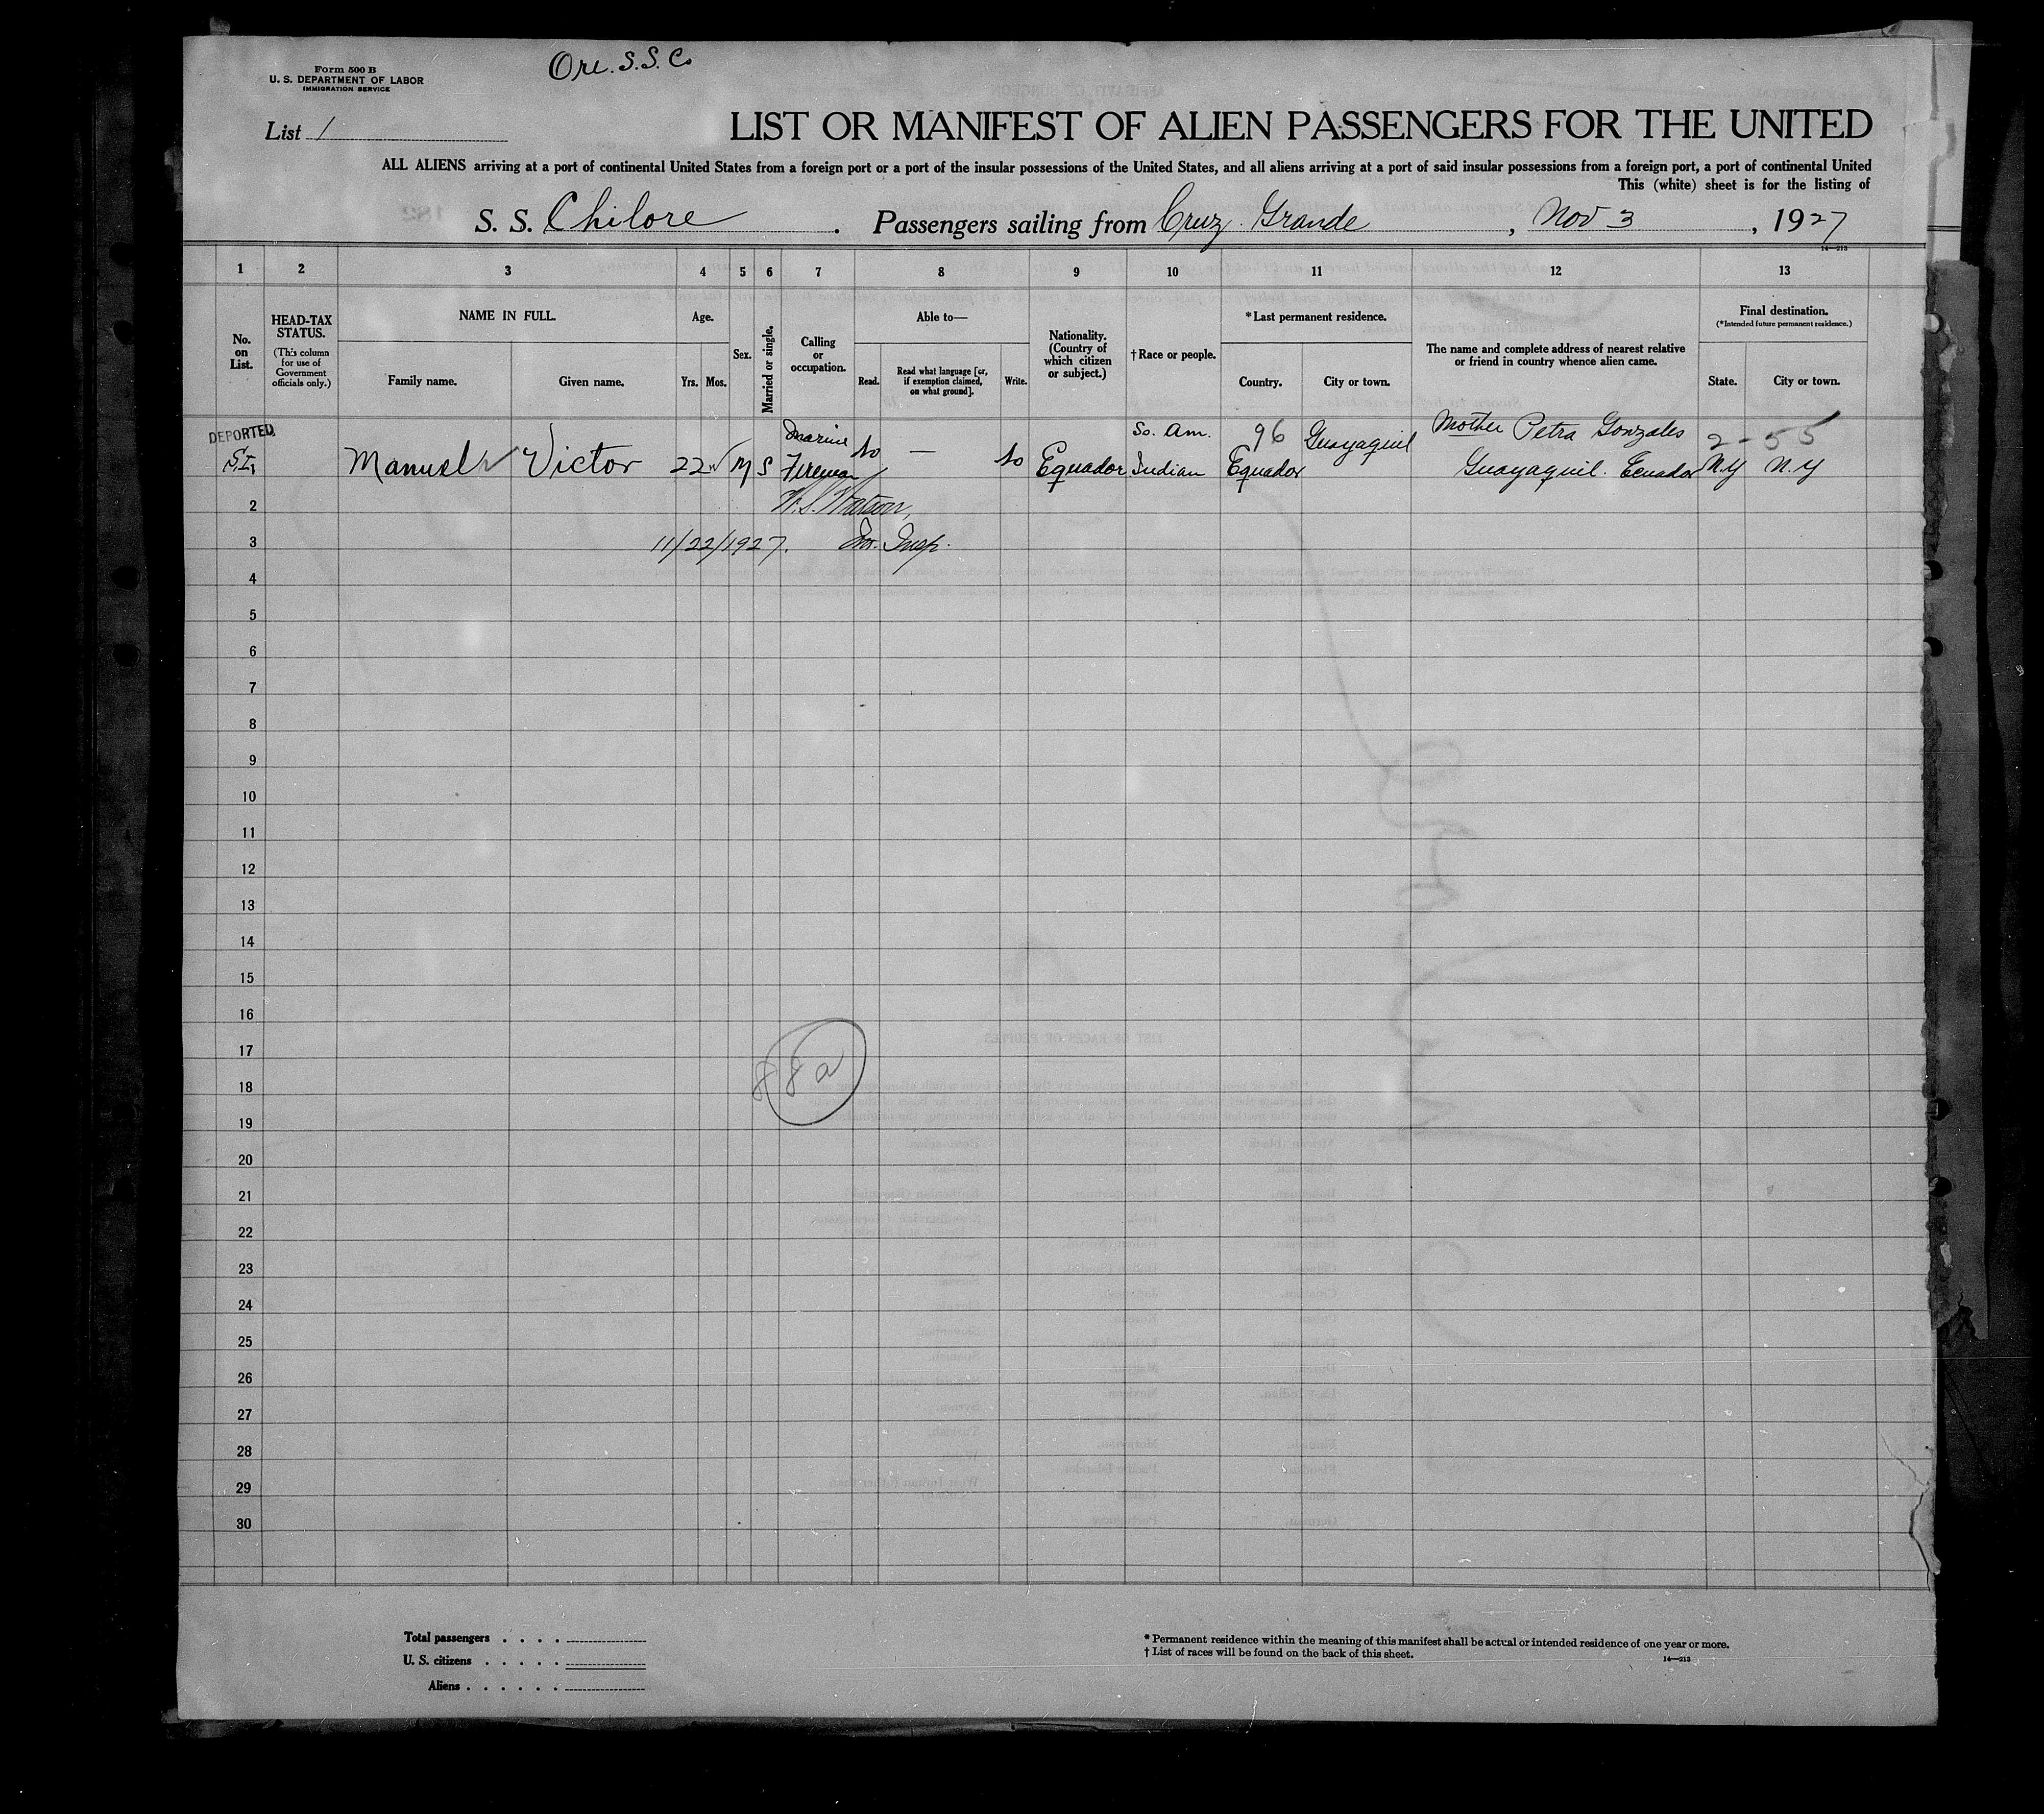 Form 500 B
U. S. DEPARTMENT OF LABOR
IMMIGRATION SERVICE
Ore. S.S. Co
List 1
LIST OR MANIFEST OF ALIEN PASSENGERS FOR THE UNITED
ALL ALIENS arriving at a port of continental United States from a foreign port or a port of the insular possessions of the United States, and all aliens arriving at a port of said insular possessions from a foreign port, a port of continental United
This (white) sheet is for the listing of
S. S. Chilore. Passengers sailing from Cruz Grande, Nov 3, 1927
14—213
1 2 3 4 5 6 7 8 9 10 11 12 13
No. on List.
HEAD-TAX STATUS.
(This column for use of Government officials only.)
NAME IN FULL.
Family name. Given name.
Age.
Yrs. Mos.
Sex.
Married or single.
Calling or occupation.
Able to—
Read. Read what language [or, if exemption claimed, on what ground]. Write.
Nationality. (Country of which citizen or subject.)
†Race or people.
*Last permanent residence.
Country. City or town.
The name and complete address of nearest relative or friend in country whence alien came.
Final destination.
(*Intended future permanent residence.)
State. City or town.
DEPORTED Marine So. Am. 96 Guayaquil Mother Petra Gonzales 2-55
S.I. 1 Manuel Victor 22 M S Fireman No — No Equador Indian Equador Guayaquil. Ecuador N.Y N.Y
2 W. S. Watson,
3 11/22/1927. Imr. Insp.
4
5
6
7
8
9
10
11
12
13
14
15
16
17
88a
18
19
20
21
22
23
24
25
26
27
28
29
30
Total passengers . . . .
U. S. citizens . . . . .
Aliens . . . . . .
* Permanent residence within the meaning of this manifest shall be actual or intended residence of one year or more.
† List of races will be found on the back of this sheet.
14—213